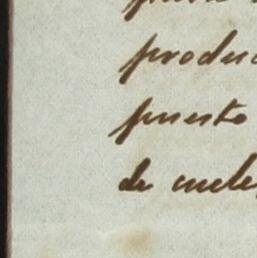 produc
puesto
de cuele